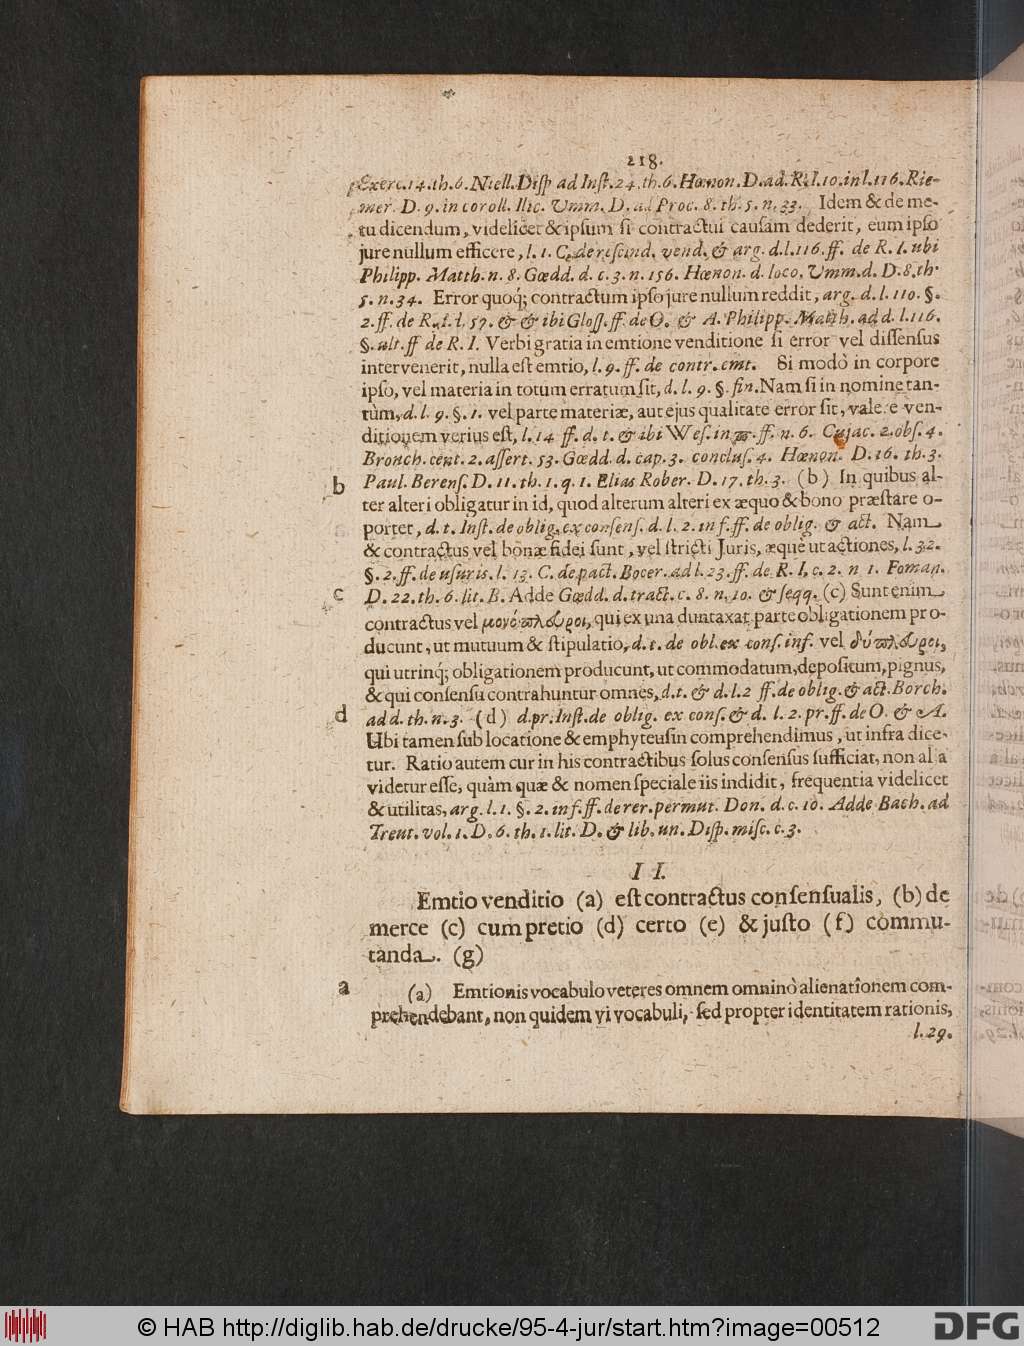 218.
Exerc. 14. th. 6. Niell. Disp ad Inst. 24. th. 6. Hœnon. D. ad. R. l. 10. in l. 116. Rie-
mer. D. 9. in coroll. Ilic. Umm. D. ad Proc. 8. th. 5. n. 33. Idem & de me-
tu dicendum, videlicet & ipsum si contractui causam dederit, eum ipso
jure nullum efficere, l. 1. C. de rescind. vend. & arg. d. l. 116. ff. de R. I. ubi
Philipp. Matth. n. 8. Gœdd. d. c. 3. n. 156. Hœnon. d. loco. Umm. d. D. 8. th.
5. n. 34. Error quoq; contractum ipso jure nullum reddit, arg. d. l. 110. §.
2. ff. de R. I. l. 57. & & ibi Gloss. ff. de O. & A. Philipp. Matth. ad d. l. 116.
§. ult. ff de R. I. Verbi gratia in emtione venditione si error vel dissensus
intervenerit, nulla est emtio, l. 9. ff. de contr. emt. Si modò in corpore
ipso, vel materia in totum erratum sit, d. l. 9. §. fin. Nam si in nomine tan-
tùm, d. l. 9. §. 1. vel parte materiæ, aut ejus qualitate error sit, valere ven-
ditionem verius est, l. 14 ff. d. t. & ibi Wes. in ϖ. ff. n. 6. Cujac. 2. obs. 4.
Bronch. cent. 2. assert. 53. Gœdd. d. cap. 3. conclus. 4. Hœnon. D. 16. th. 3.
b Paul. Berens. D. 11. th. 1. q. 1. Elias Rober. D. 17. th. 3. (b) In quibus al-
ter alteri obligatur in id, quod alterum alteri ex æquo & bono præstare o-
portet, d. t. Inst. de oblig. ex consens. d. l. 2. in f. ff. de oblig. & act. Nam
& contractus vel bonæ fidei sunt, vel stricti Juris, æquè ut actiones, l. 32.
§. 2. ff. de usuris. l. 13. C. de pact. Bocer. ad l. 23. ff. de R. I. c. 2. n 1. Foman.
c D. 22. th. 6. lit. B. Adde Gœdd. d. tract. c. 8. n. 10. & seqq. (c) Sunt enim
contractus vel μονόπλευροι, qui ex una duntaxat parte obligationem pro-
ducunt, ut mutuum & stipulatio, d. t. de obl. ex cons. inf. vel δύπλευροι,
qui utrinq; obligationem producunt, ut commodatum, depositum, pignus,
& qui consensu contrahuntur omnes, d. t. & d. l. 2 ff. de oblig. & act. Borch.
d ad d. th. n. 3. (d) d. pr. Inst. de oblig. ex cons. & d. l. 2. pr. ff. de O. & A.
Ubi tamen sub locatione & emphyteusin comprehendimus, ut infra dice-
tur. Ratio autem cur in his contractibus solus consensus sufficiat, non al a
videtur esse, quàm quæ & nomen speciale iis indidit, frequentia videlicet
& utilitas, arg. l. 1. §. 2. in f. ff. de rer. permut. Don. d. c. 10. Adde Bach. ad
Treut. vol. 1. D. 6. th. 1. lit. D. & lib. un. Disp. misc. c. 3.
I I.
Emtio venditio (a) est contractus consensualis, (b) de
merce (c) cum pretio (d) certo (e) & justo (f) commu-
tanda. (g)
a (a) Emtionis vocabulo veteres omnem omninò alienationem com-
prehendebant, non quidem vi vocabuli, sed propter identitatem rationis,
l. 29.
© HAB http://diglib.hab.de/drucke/95-4-jur/start.htm?image=00512
DFG